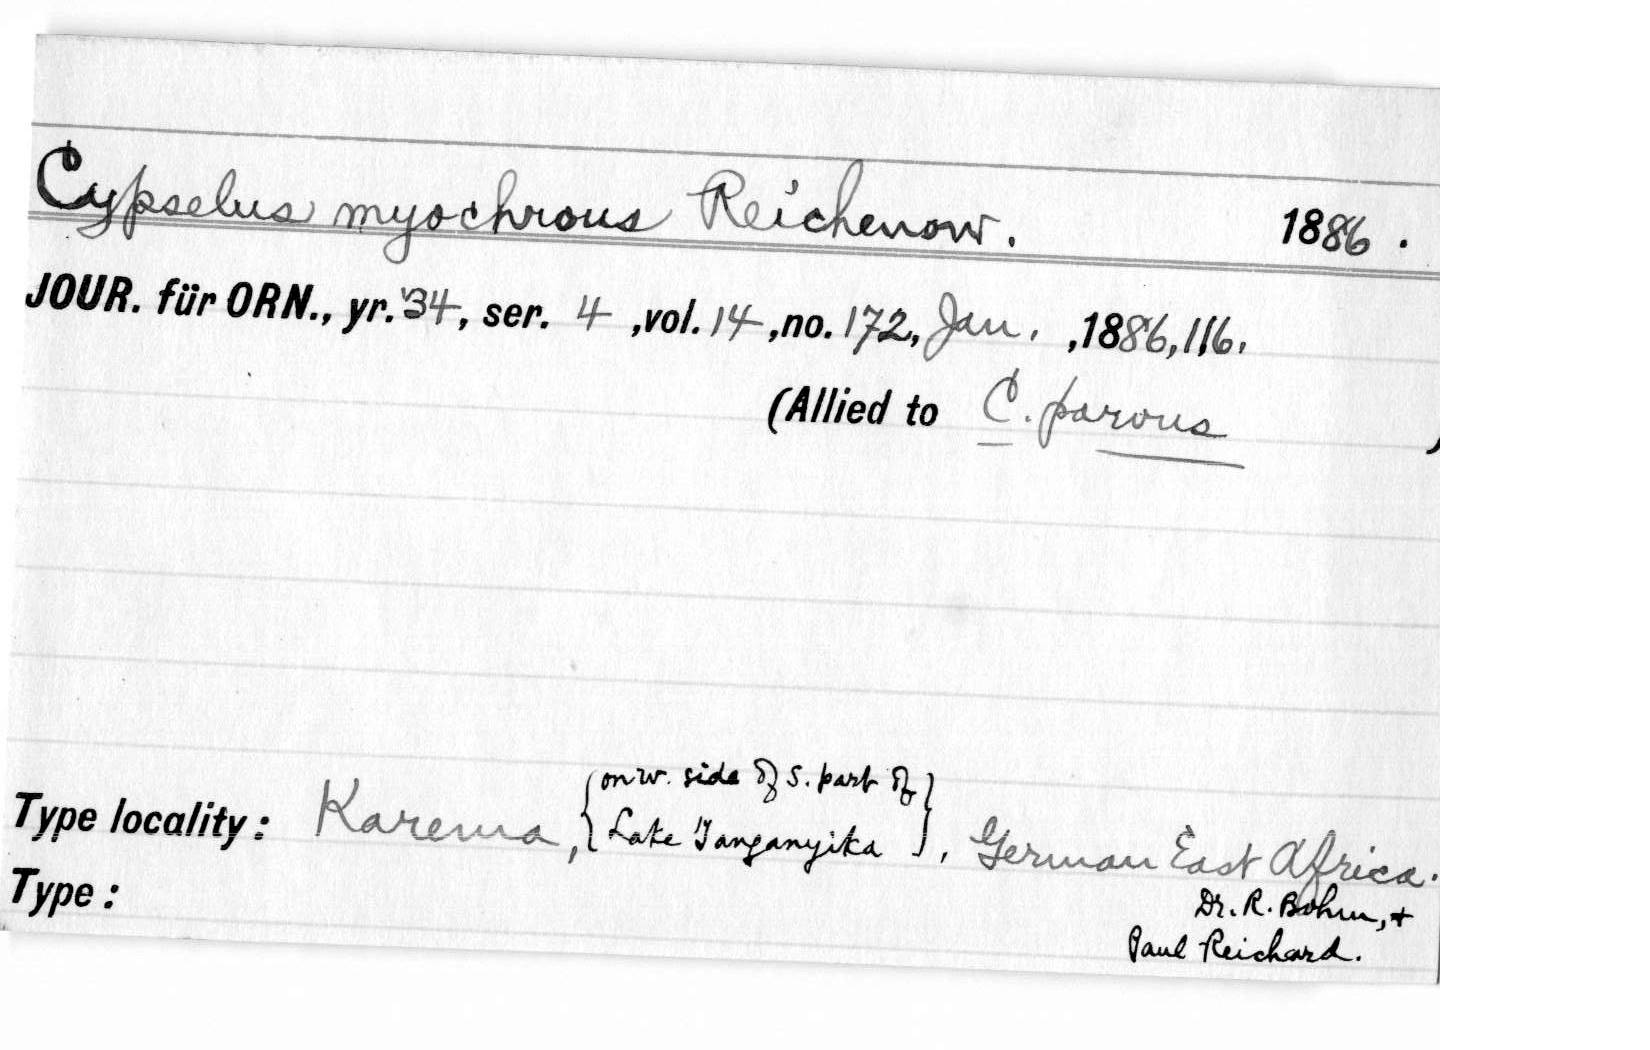 Cypselus myochrous Reichenow. 1886.
JOUR. für ORN., yr. '34, ser. 4, vol. 14, no. 172, Jan., 1886, 116.
(Allied to C. parvus)
Type locality: Karema, {on w. side of S. part of
Lake Tanganyika}, German East Africa.
Type: Dr. R. Bohm, +
Paul Reichard.